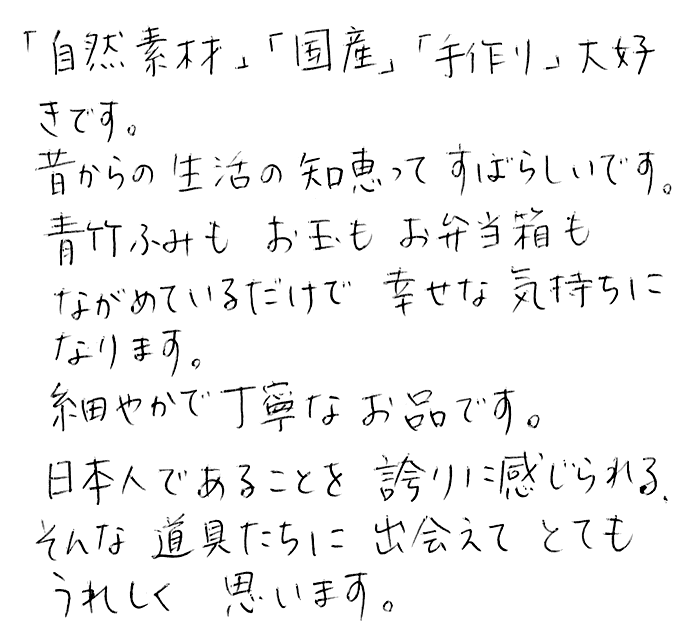 「自然素材」「国産」「手作り」大好
きです。
昔からの生活の知恵ってすばらしいです。
青竹ふみも お玉も お弁当箱も
ながめているだけで 幸せな気持ちに
なります。
細やかで丁寧なお品です。
日本人であることを 誇りに感じられる、
そんな道具たちに 出会えて とても
うれしく 思います。